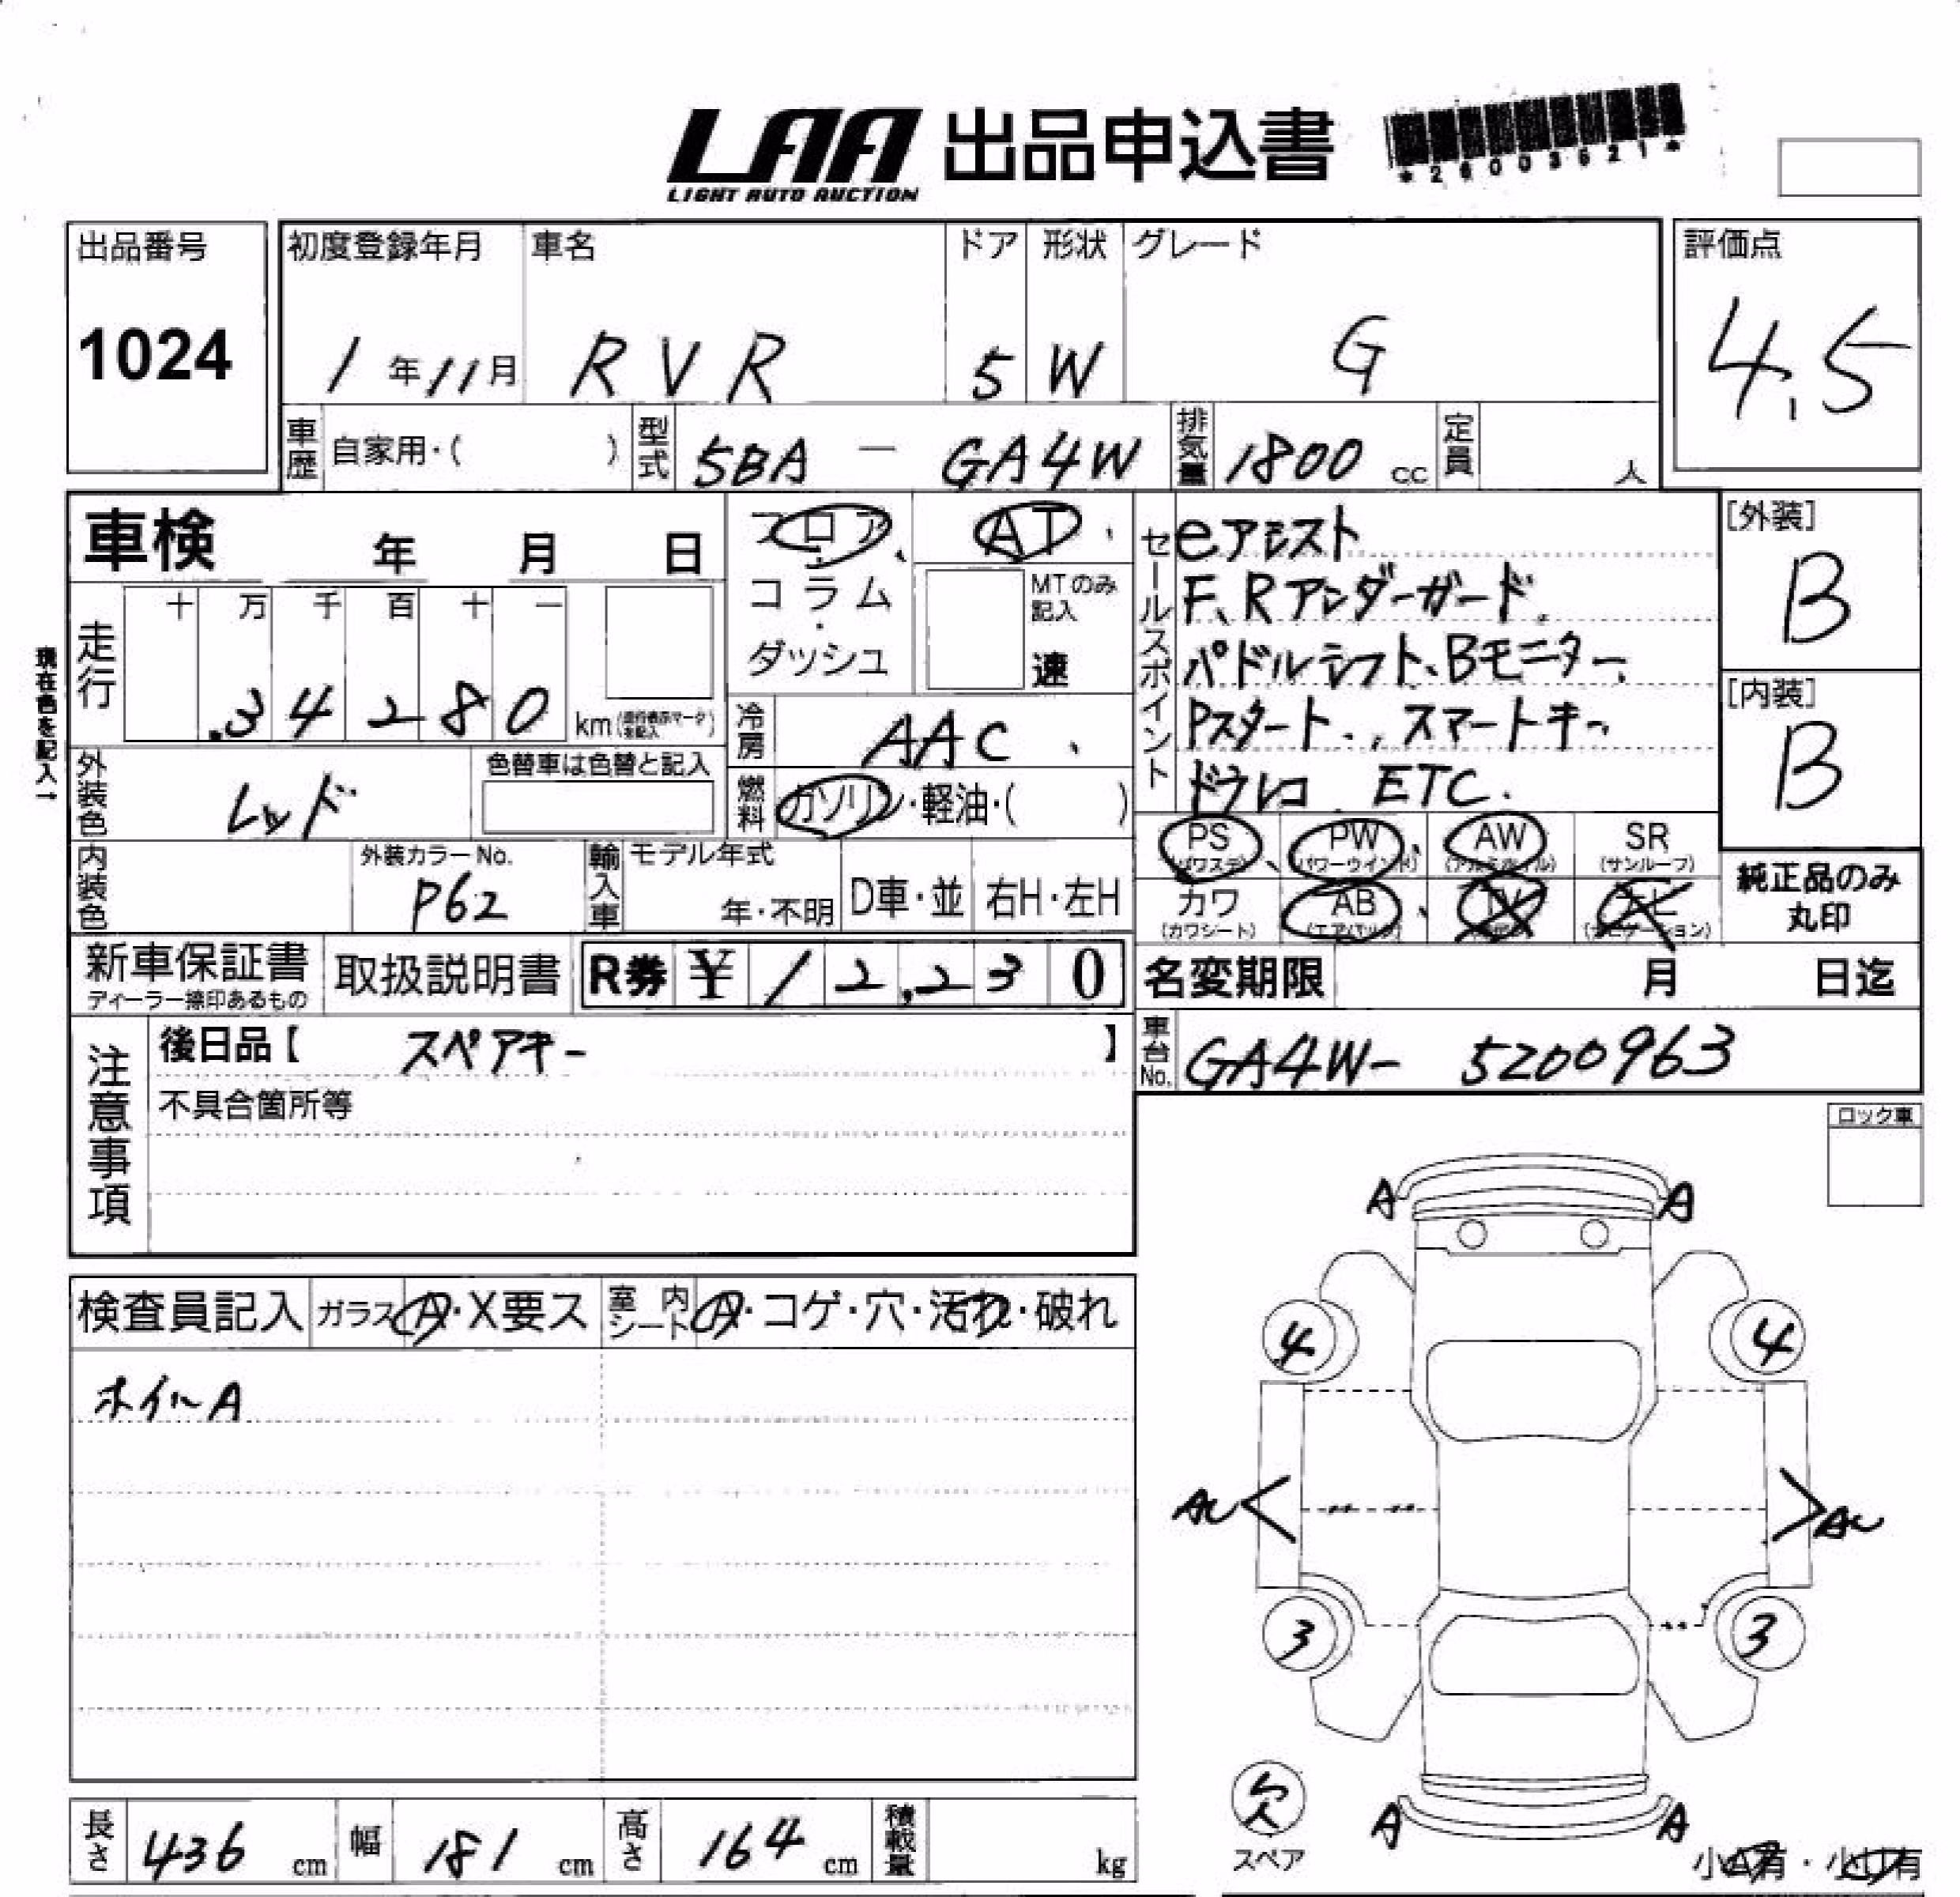 LAA 出品申込書
LIGHT AUTO AUCTION
*26003521*
出品番号 初度登録年月 車名 ドア 形状 グレード 評価点
1024 1年11月 RVR 5 W G 4.5
車歴 自家用・( ) 型式 5BA - GA4W 排気量 1800 cc 定員 人
車検 年 月 日
フロア・コラム・ダッシュ
AT
MTのみ記入
速
セールスポイント
eアシスト
F、Rアンダーガード
パドルシフト、Bモニター
Pスタート、スマートキー
ドラレコ ETC.
[外装]
B
[内装]
B
現在色を記入→
走行 十 万 千 百 十 一
34280 km
冷房 AAC
外装色 レッド 色替車は色替と記入
燃料 ガソリン・軽油・( )
PS (パワステ) PW (パワーウインド) AW (アルミホイル) SR (サンルーフ)
カワ (カワシート) AB (エアバック) TV ナビ (ナビゲーション)
純正品のみ丸印
内装色 外装カラーNo. P62 輸入車 モデル年式 年・不明 D車・並 右H・左H
新車保証書 ディーラー捺印あるもの 取扱説明書 R券 ¥12,230
名変期限 月 日迄
注意事項
後日品【 スペアキー 】
不具合箇所等
車台No. GA4W- 5200963
ロック車
A A
検査員記入 ガラス A・X要ス 室内シート A・コゲ・穴・汚れ・破れ
ホイルA
4 4
AU AU
3 3
欠
スペア
A A
小A有・小U有
長さ 436 cm 幅 181 cm 高さ 164 cm 積載量 kg